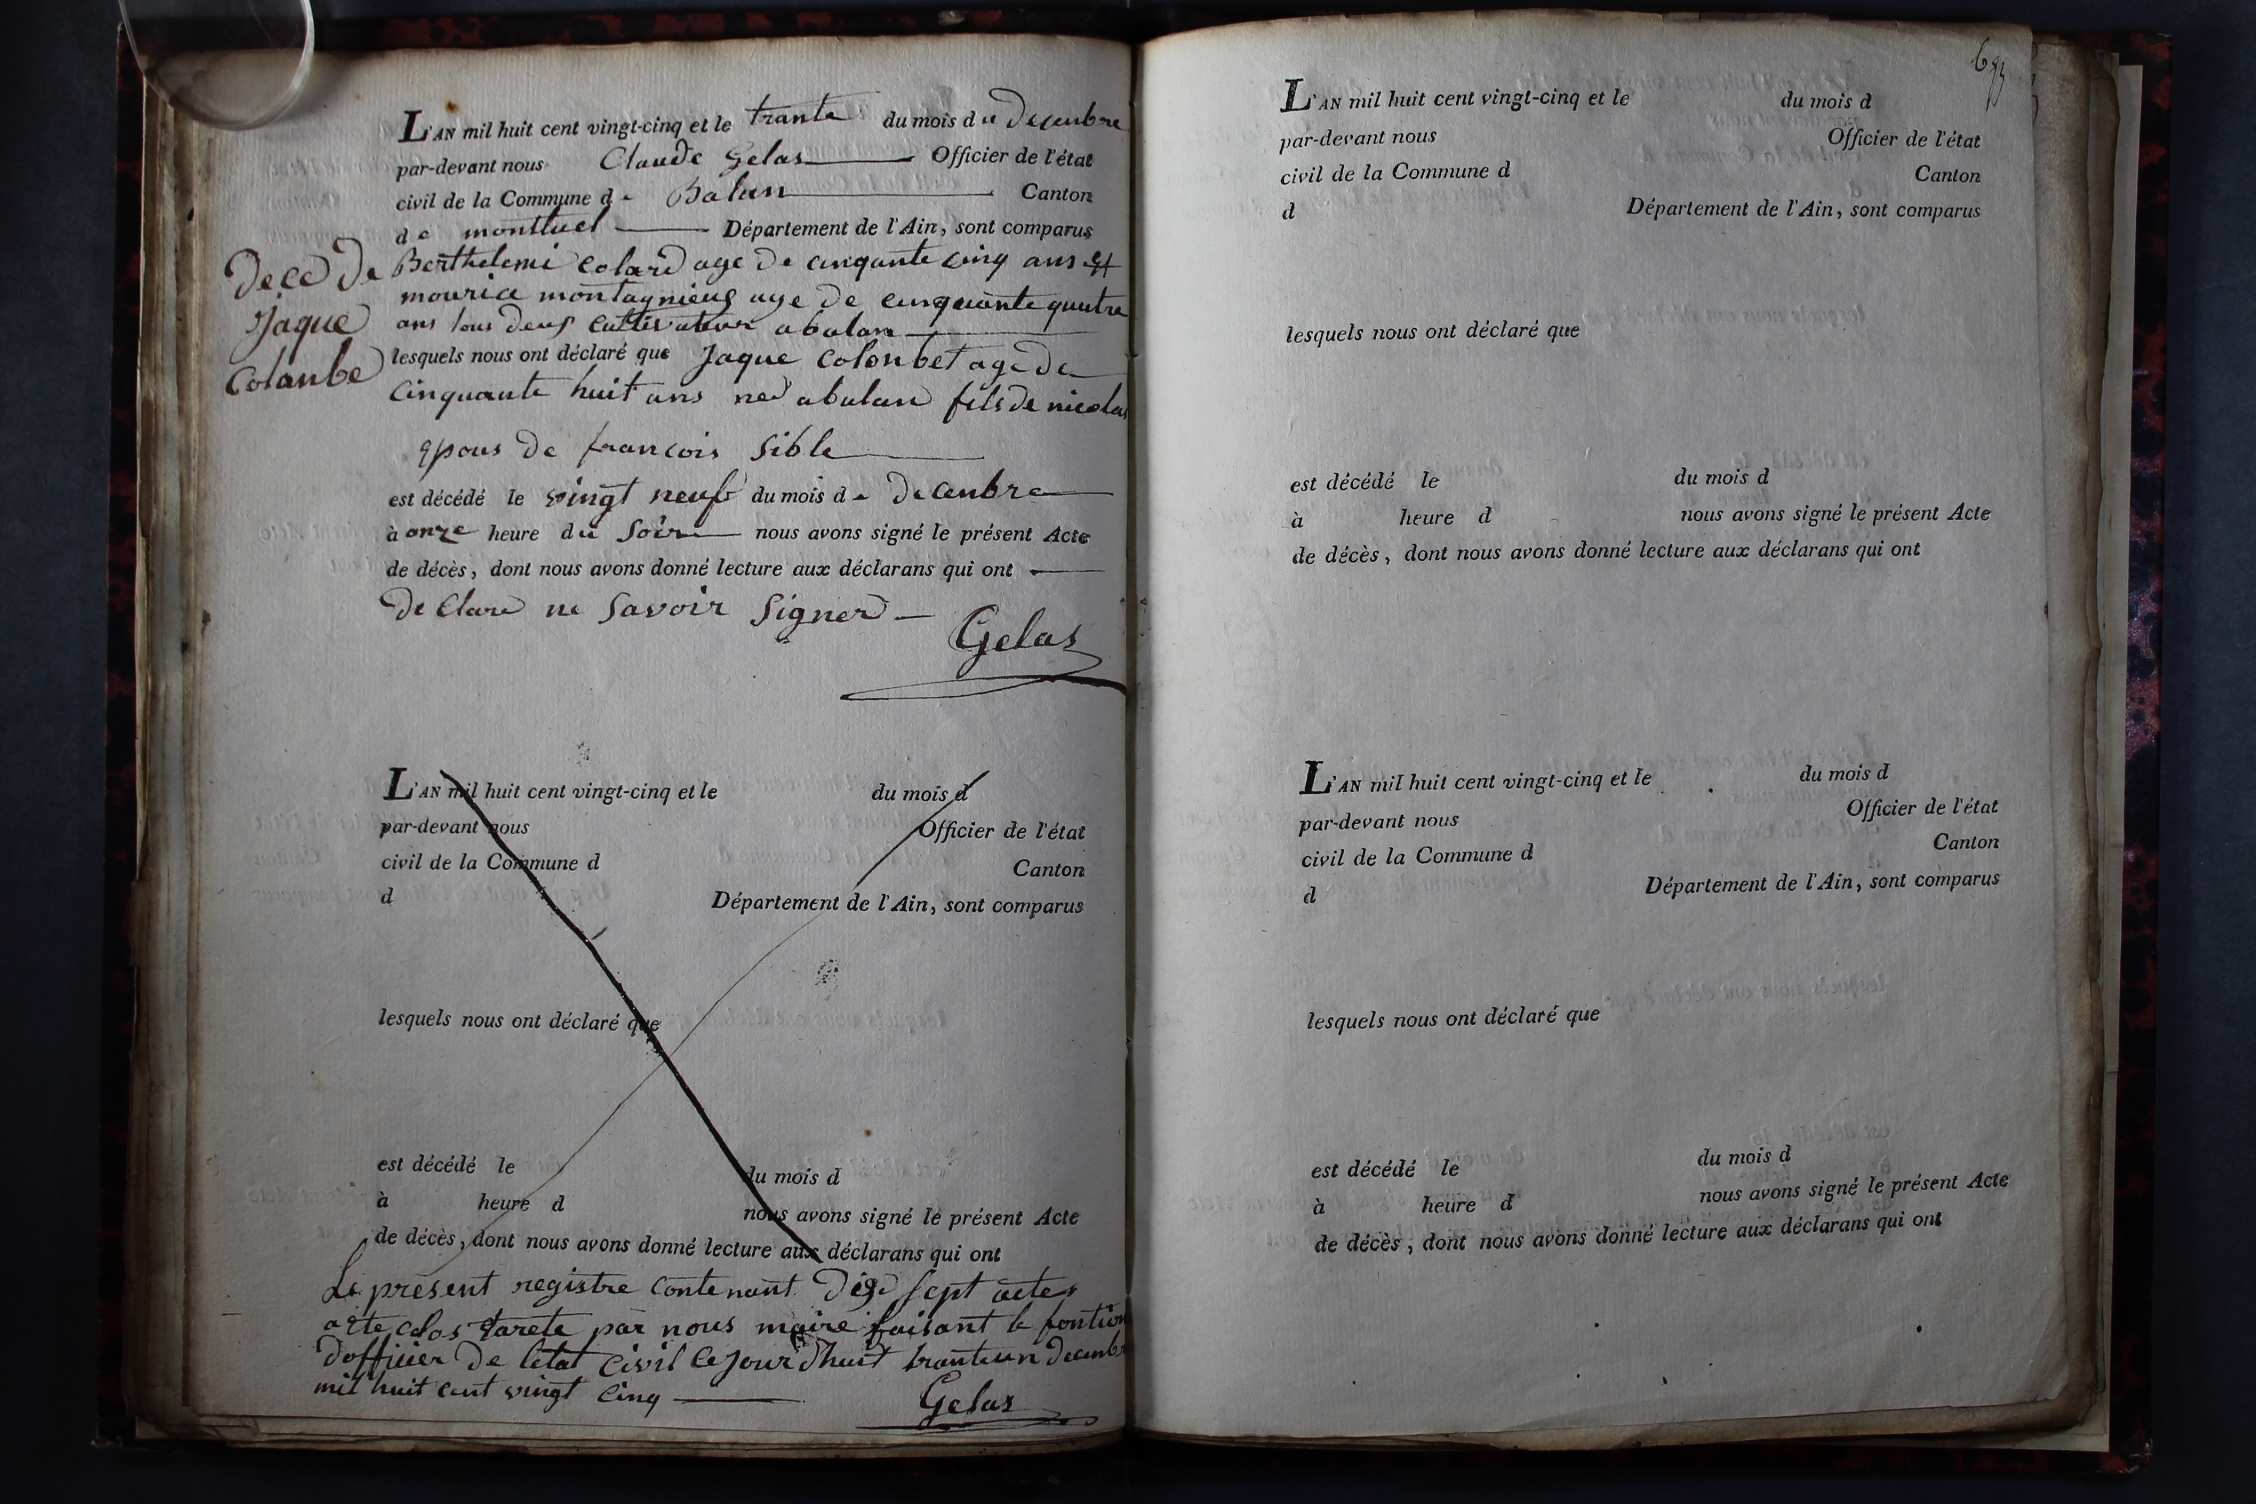 L'AN mil huit cent vingt-cinq et le trante du mois de decenbre
par-devant nous Claude Gelas Officier de l'état
civil de la Commune de Balan Canton
de montluel Département de l'Ain, sont comparus
Berthelemi Colard age de cinqante cinq ans et
mourice montagnieug age de cinquante quatre
ans tous deus cultivateur abalan
lesquels nous ont déclaré que Jaque Colonbet age de
cinquante huit ans ned abalan fils de nicolas
epous de francois Sible
est décédé le vingt neufe du mois de decenbre
à onze heure du Soir nous avons signé le présent Acte
de décès, dont nous avons donné lecture aux déclarans qui ont
declare ne Savoir Signer
Gelas
Dece de
Jaque
Colanbe
L'AN mil huit cent vingt-cinq et le du mois d
par-devant nous Officier de l'état
civil de la Commune d Canton
d Département de l'Ain, sont comparus
lesquels nous ont déclaré que
est décédé le du mois d
à heure d nous avons signé le présent Acte
de décès, dont nous avons donné lecture aux déclarans qui ont
Le present registre contenant dis Sept actes
a ete clos tarete par nous maire faisant le fontion
dofficier de letat civil ce jourdhuit trante un decenbr
mil huit cent vingt cinq
Gelas
L'AN mil huit cent vingt-cinq et le du mois d
par-devant nous Officier de l'état
civil de la Commune d Canton
d Département de l'Ain, sont comparus
lesquels nous ont déclaré que
est décédé le du mois d
à heure d nous avons signé le présent Acte
de décès, dont nous avons donné lecture aux déclarans qui ont
L'AN mil huit cent vingt-cinq et le du mois d
par-devant nous Officier de l'état
civil de la Commune d Canton
d Département de l'Ain, sont comparus
lesquels nous ont déclaré que
est décédé le du mois d
à heure d nous avons signé le présent Acte
de décès, dont nous avons donné lecture aux déclarans qui ont